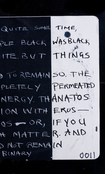 QUITE SOME TIME,
PLE BLACK WAS BLACK,
ITE BUT THINGS
D TO REMAIN SO, THE
PLETELY PERMEATED
NERGY THANATOS
ION WITH EROS—
S—OR, IF YOU
A MATTER, AND
D NOT REMAIN
BINARY
0011